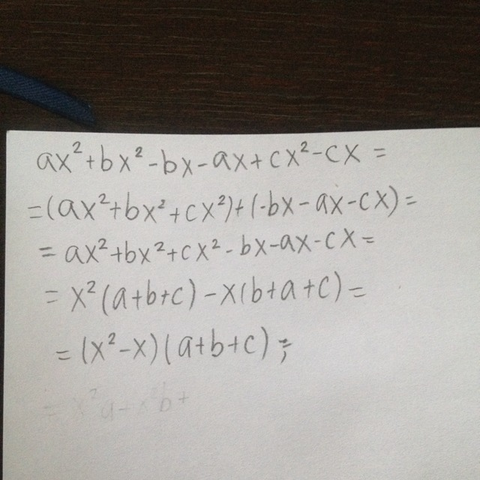 ax²+bx²-bx-ax+cx²-cx=
=(ax²+bx²+cx²)+(-bx-ax-cx)=
=ax²+bx²+cx²-bx-ax-cx=
=x²(a+b+c)-x(b+a+c)=
=(x²-x)(a+b+c);